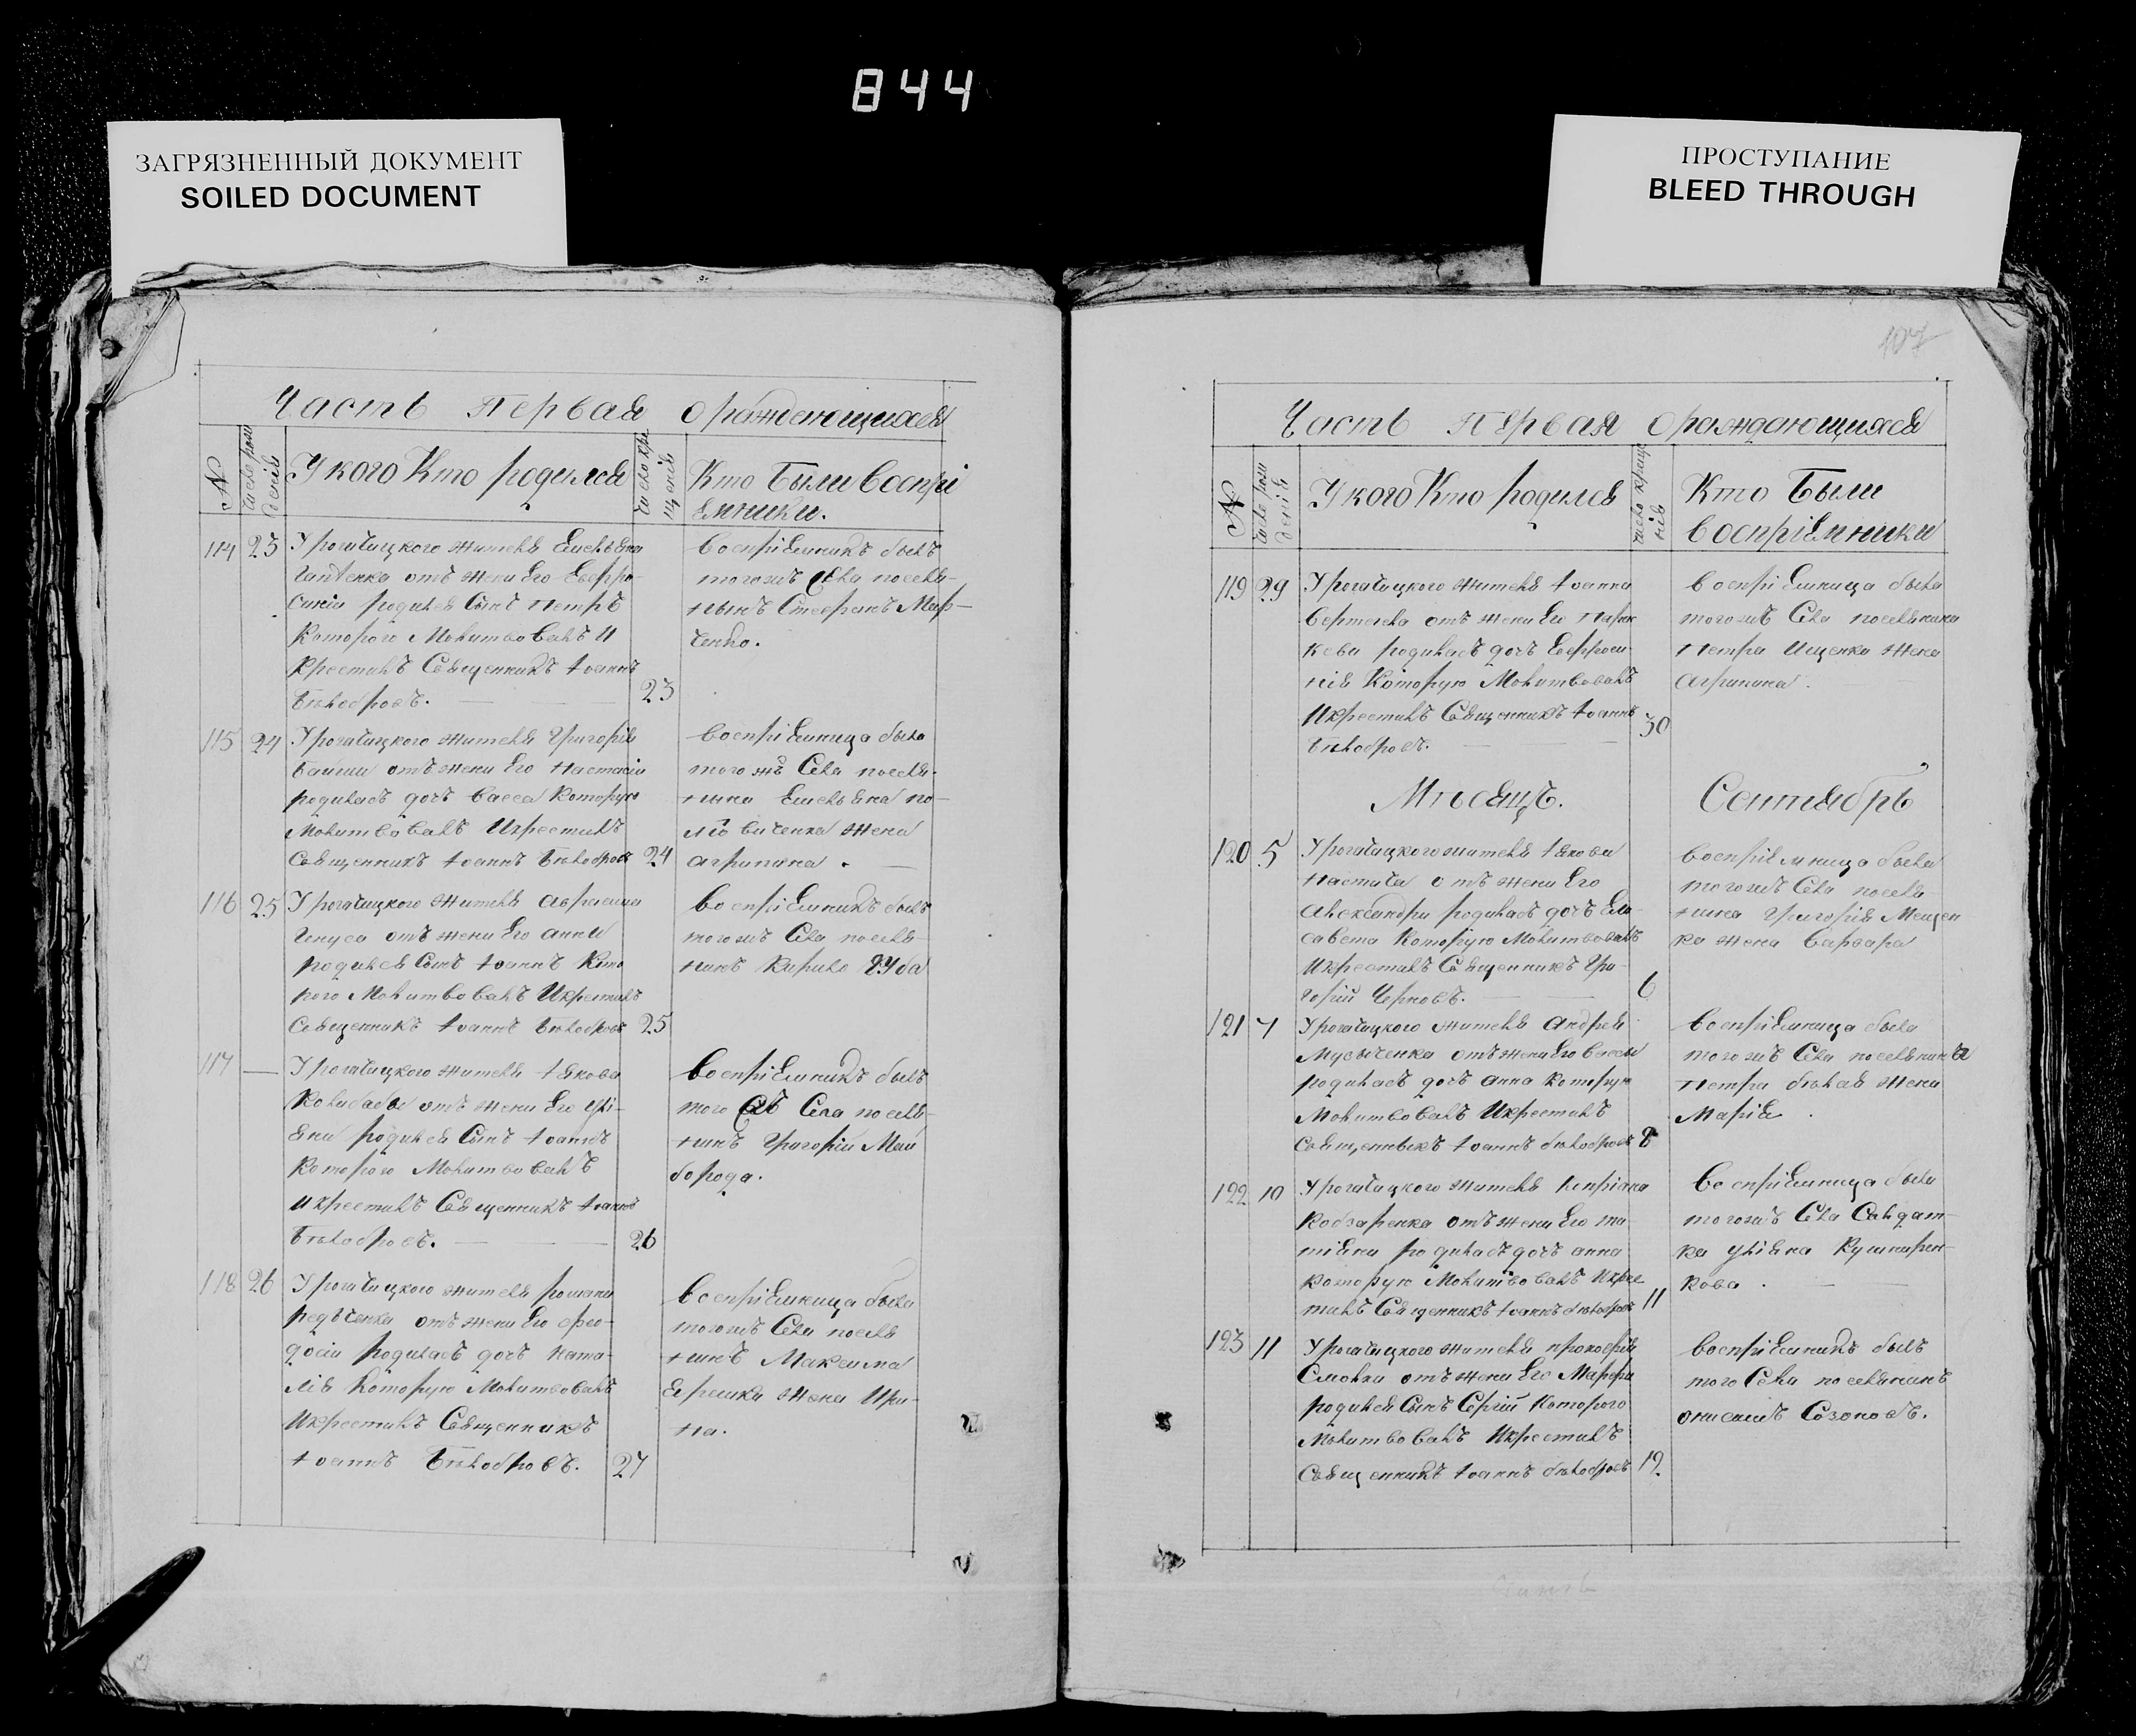 844
ЗАГРЯЗНЕННЫЙ ДОКУМЕНТ
SOILED DOCUMENT
ПРОСТУПАНИЕ
BLEED THROUGH
Часть первая ораждающихся
N
число рож
денія
У кого Кто родился
число кре
щенія
Кто Были воспрі
емники.
114 23 У рогачицкого жителя Емельяна
отъ жени Его Евфро-
синіи родился Сынъ Петръ
Которого Молитвовалъ И
Крестилъ Священникъ Іоаннъ
Бѣлобровъ. 23
воспріемникъ былъ
тогожъ Села поселя-
нынъ Стефанъ Мар-
ченко.
115 24 У рогачицкого жителя Григорія
отъ жени Его Настасіи
родилась дочъ Васса Которую
Молитвовалъ Икрестилъ
Священникъ Іоаннъ Бѣлобровъ 24
воспріемница была
того жъ Села поселя-
нина Емельяна
жена
агрипина.
116 25 У рогачицкого жителя
отъ жени Его анни
родился Сынъ Іоаннъ Кото
рого Молитвовалъ Икрестилъ
Священникъ Іоаннъ Бѣлобровъ 25
воспріемникъ былъ
тогожъ Села поселя-
нинъ Кирило Губа
117 — У рогачицкого жителя Іякова
Колибабы отъ жени Его Улі-
яни родился Сынъ Іоаннъ
Которого Молитвовалъ
Икрестилъ Священникъ Іоаннъ
Бѣлобровъ. 26
воспріемникъ былъ
того жъ Села поселя-
нинъ Григорій Май
борода.
118 26 У рогачицкого жителя романа
отъ жени Его Фео-
досіи родилась дочъ Ната-
лія Которую Молитвовалъ
Икрестилъ Священникъ
Іоаннъ Бѣлобровъ. 27
воспріемница была
тогожъ Села поселя
нинъ Максима
Яремка жена Ири-
на.
107
Часть первая ораждающихся
N
число рож
денія
У кого Кто родился
число креще
нія
Кто Были
воспріемники
119 29 У рогачицкого жителя Іоанна
отъ жени Его Парас
кеви родилась дочъ Евфроси-
нія Которую Молитвовалъ
Икрестилъ Священникъ Іоаннъ
Бѣлобровъ. 30
воспріемница была
тогожъ Села поселянина
Петра Ищенка жена
агрипина.
Мѣсяцъ. Сентябрь
120 5 У рогачицкого жителя Іякова
отъ жени Его
александри родилась дочъ Ели-
савета Которую Молитвовалъ
Икрестилъ Священникъ Гри-
горій Черновъ. 6
воспріемница была
тогожъ Села поселя-
нина Григорія Мещен
ка жена варвара
121 7 У рогачицкого жителя андрея
Мусыченка отъ жени Его вассы
родилась дочъ анна Которую
Молитвовалъ Икрестилъ
Священныкъ Іоаннъ бѣлобровъ 8
воспріемница была
тогожъ Села поселянина
Петра бѣлая жена
Марія.
122 10 У рогачицкого жителя Кипріана
Кобзаренка отъ жени Его та
тіяни родилась дочъ анна
Которую Молитвовалъ Икрес
тилъ Священникъ Іоаннъ бѣлобровъ 11
воспріемница была
тогожъ Села Салдат-
ка Уліяна Кушнирен-
кова.
123 11 У рогачицкого жителя прокофія
отъ жени Его Марфи
родился Сынъ Сергій Которого
Молитвовалъ Икрестилъ
Священникъ Іоаннъ бѣлобровъ 12
воспріемникъ былъ
того Села поселянинъ
онисимъ Созоновъ.